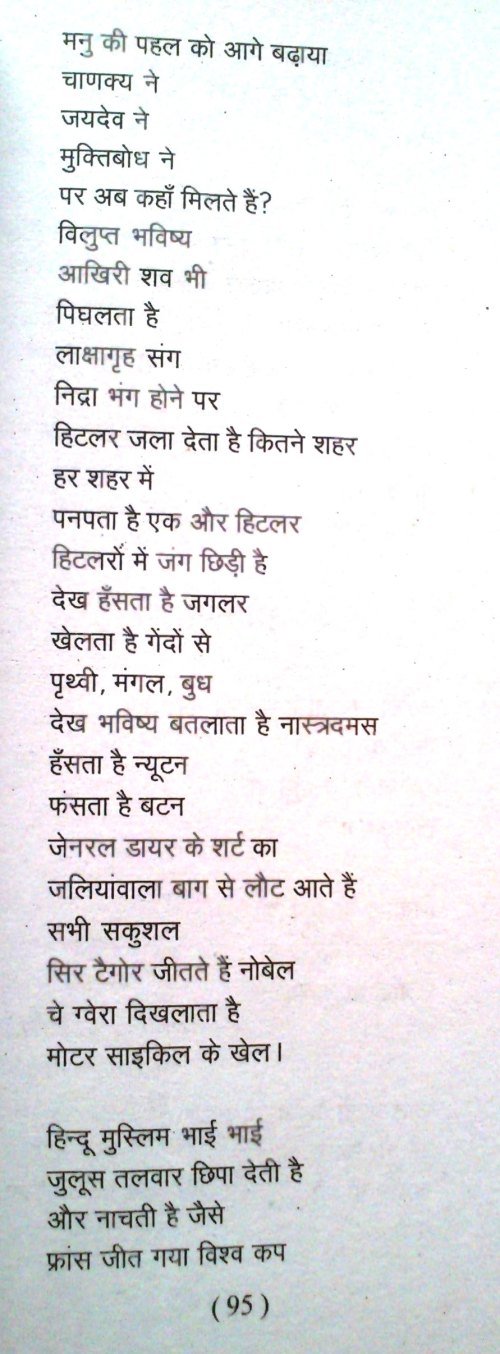 मनु की पहल को आगे बढ़ाया
चाणक्य ने
जयदेव ने
मुक्तिबोध ने
पर अब कहाँ मिलते हैं?
विलुप्त भविष्य
आखिरी शव भी
पिघलता है
लाक्षागृह संग
निद्रा भंग होने पर
हिटलर जला देता है कितने शहर
हर शहर में
पनपता है एक और हिटलर
हिटलरों में जंग छिड़ी है
देख हँसता है जगलर
खेलता है गेंदों से
पृथ्वी, मंगल, बुध
देख भविष्य बतलाता है नास्त्रदमस
हँसता है न्यूटन
फंसता है बटन
जेनरल डायर के शर्ट का
जलियांवाला बाग से लौट आते हैं
सभी सकुशल
सिर टैगोर जीतते हैं नोबेल
चे ग्वेरा दिखलाता है
मोटर साइकिल के खेल।

हिन्दू मुस्लिम भाई भाई
जुलूस तलवार छिपा देती है
और नाचती है जैसे
फ्रांस जीत गया विश्व कप
(95)